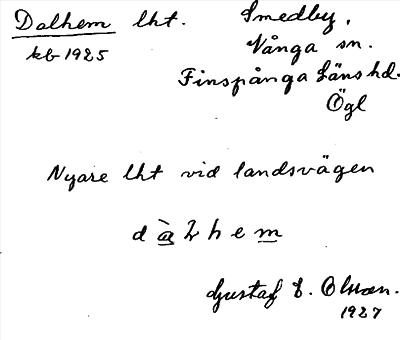 Dalhem lht. Smedby,
kb 1925 Vånga sn.
Finspånga läns hd.
Ögl
Nyare lht vid landsvägen
dàlhem
Gustaf E. Olsson.
1927